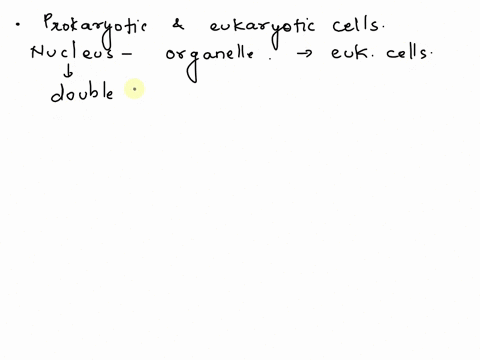 . Prokaryotic & eukaryotic cells.
Nucleus - organelle. → euk. cells.
↓
double